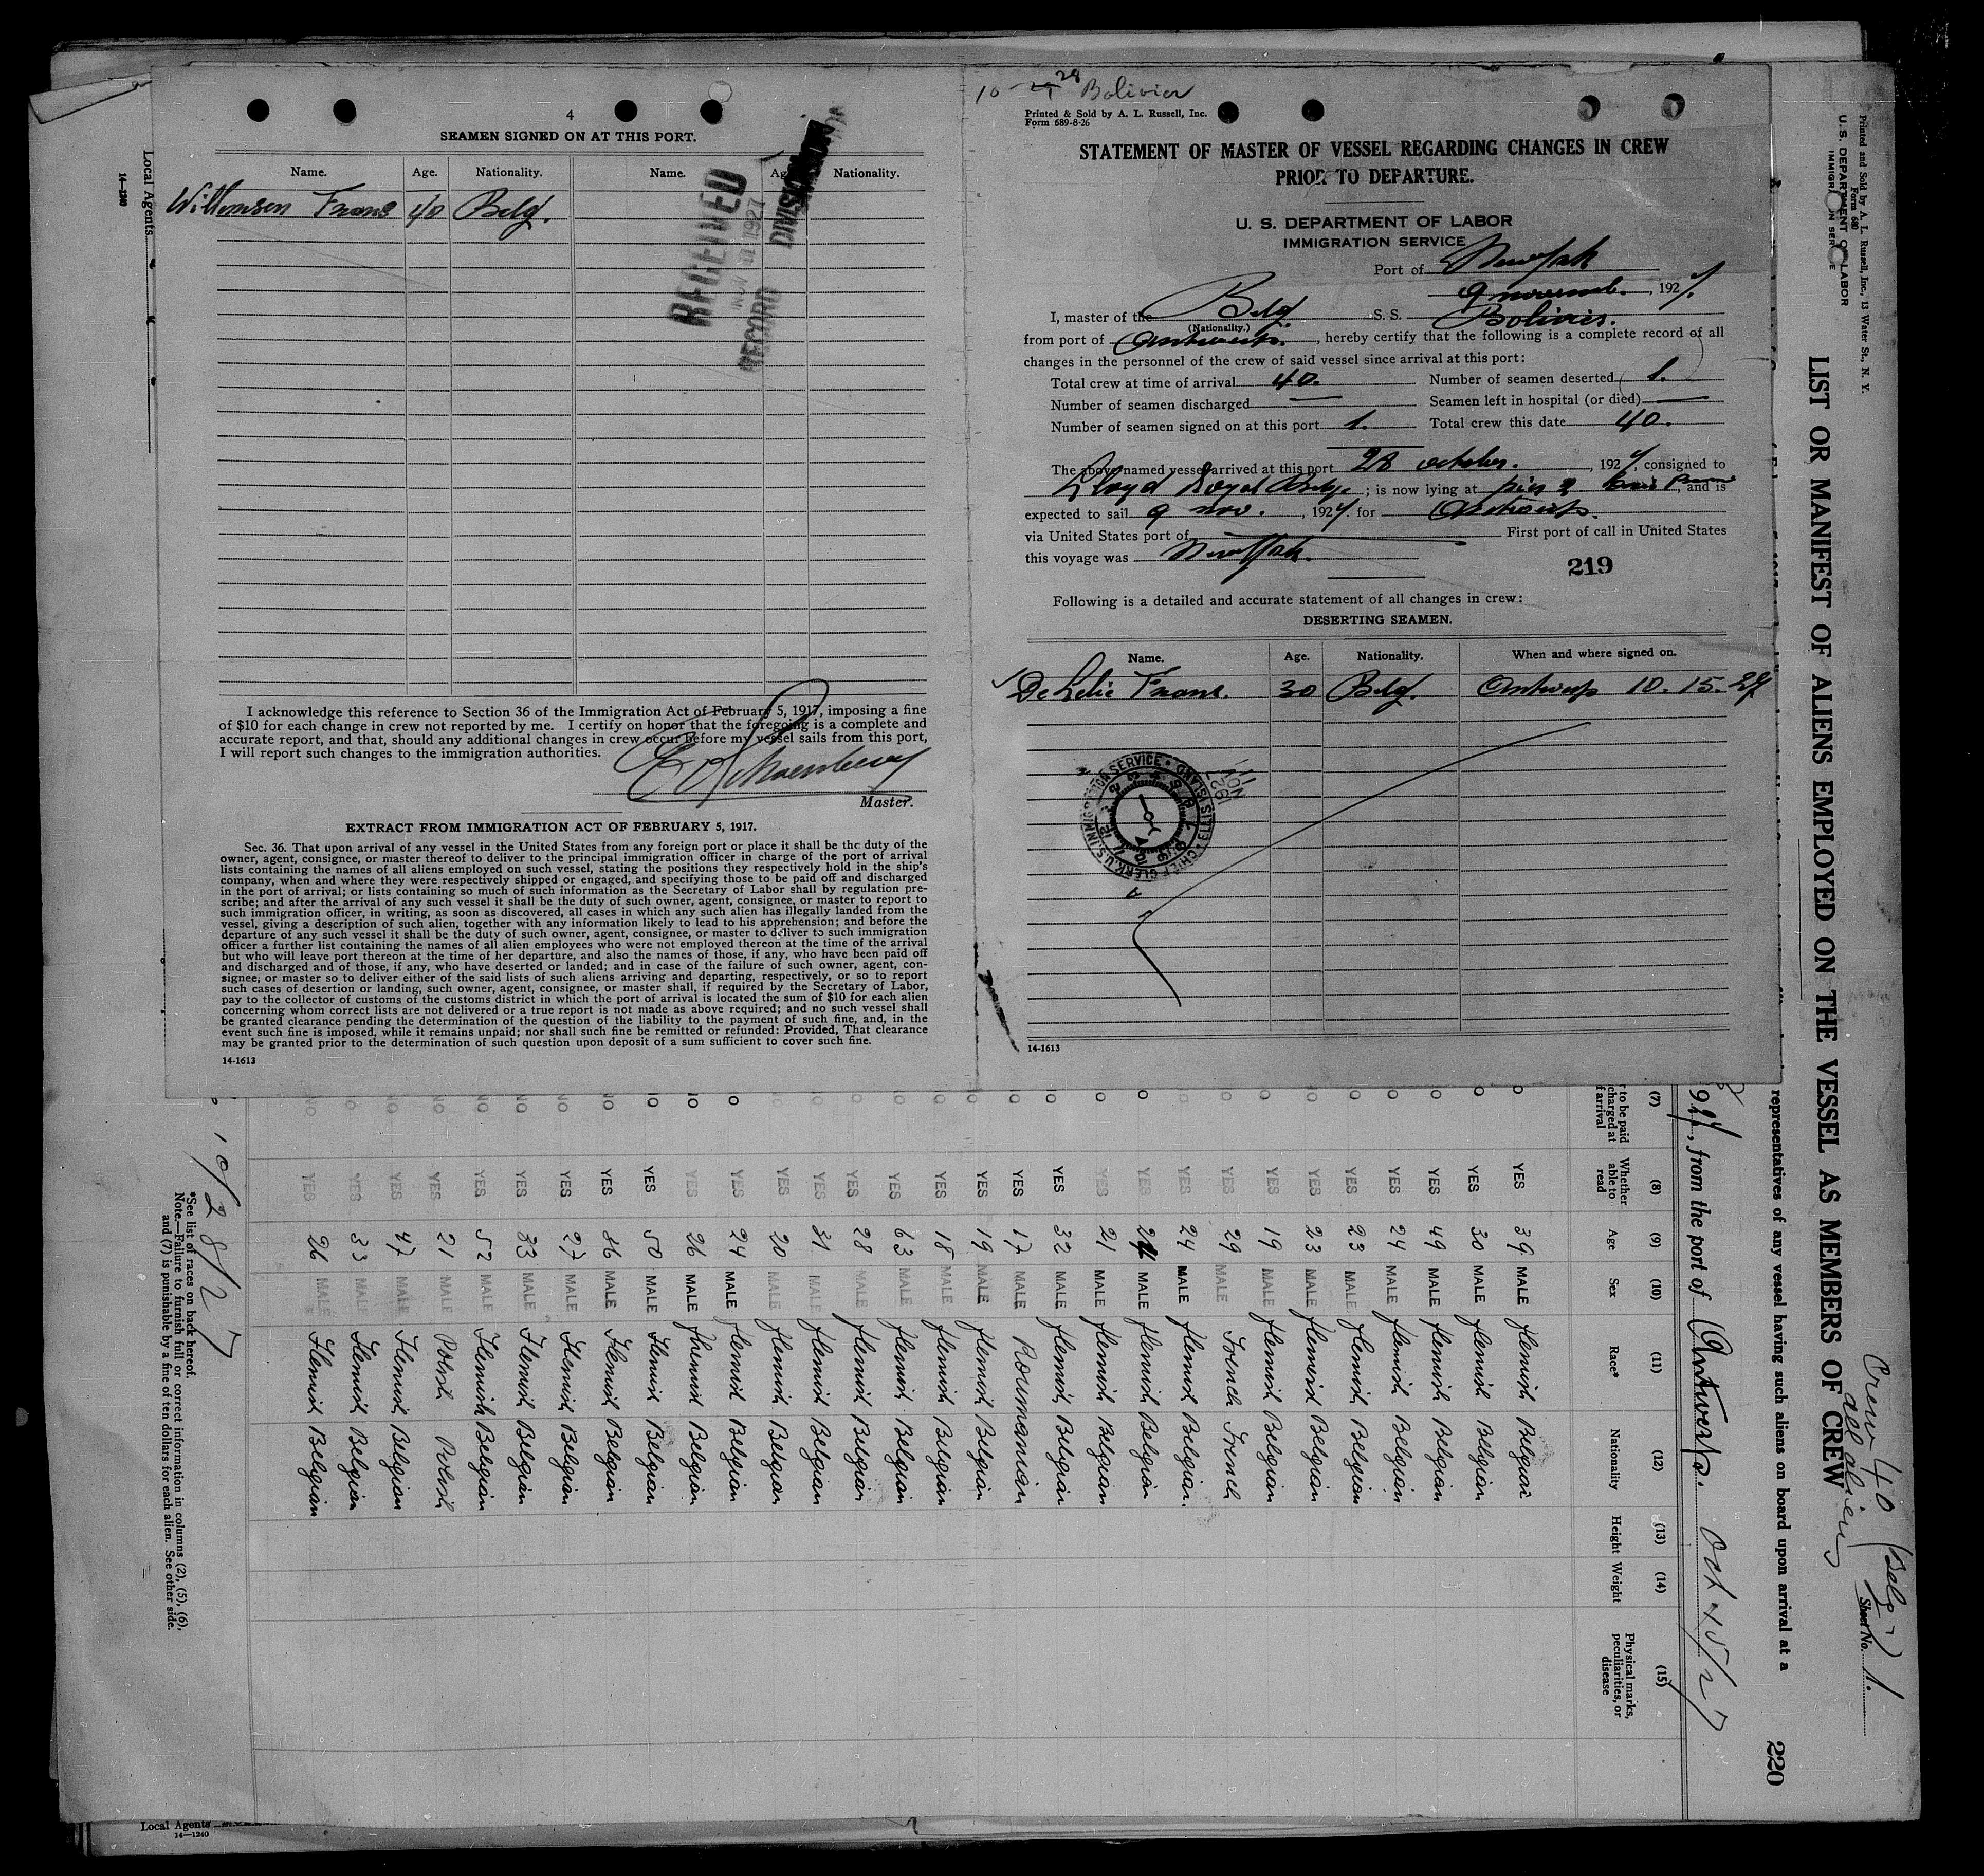 4
SEAMEN SIGNED ON AT THIS PORT.
Name. Age. Nationality. Name. Age. Nationality.
Willemsen Frans 40 Belg.
RECEIVED
NOV 11 1927
RECORD DIVISION
I acknowledge this reference to Section 36 of the Immigration Act of February 5, 1917, imposing a fine
of $10 for each change in crew not reported by me. I certify on honor that the foregoing is a complete and
accurate report, and that, should any additional changes in crew occur before my vessel sails from this port,
I will report such changes to the immigration authorities.
Master.
EXTRACT FROM IMMIGRATION ACT OF FEBRUARY 5, 1917.
Sec. 36. That upon arrival of any vessel in the United States from any foreign port or place it shall be the duty of the
owner, agent, consignee, or master thereof to deliver to the principal immigration officer in charge of the port of arrival
lists containing the names of all aliens employed on such vessel, stating the positions they respectively hold in the ship's
company, when and where they were respectively shipped or engaged, and specifying those to be paid off and discharged
in the port of arrival; or lists containing so much of such information as the Secretary of Labor shall by regulation pre-
scribe; and after the arrival of any such vessel it shall be the duty of such owner, agent, consignee, or master to report to
such immigration officer, in writing, as soon as discovered, all cases in which any such alien has illegally landed from the
vessel, giving a description of such alien, together with any information likely to lead to his apprehension; and before the
departure of any such vessel it shall be the duty of such owner, agent, consignee, or master to deliver to such immigration
officer a further list containing the names of all alien employees who were not employed thereon at the time of the arrival
but who will leave port thereon at the time of her departure, and also the names of those, if any, who have been paid off
and discharged and of those, if any, who have deserted or landed; and in case of the failure of such owner, agent, con-
signee; or master so to deliver either of the said lists of such aliens arriving and departing, respectively, or so to report
such cases of desertion or landing, such owner, agent, consignee, or master shall, if required by the Secretary of Labor,
pay to the collector of customs of the customs district in which the port of arrival is located the sum of $10 for each alien
concerning whom correct lists are not delivered or a true report is not made as above required; and no such vessel shall
be granted clearance pending the determination of the question of the liability to the payment of such fine, and, in the
event such fine is imposed, while it remains unpaid; nor shall such fine be remitted or refunded: Provided, That clearance
may be granted prior to the determination of such question upon deposit of a sum sufficient to cover such fine.
14-1613
10-28 Bolivier
Printed & Sold by A. L. Russell, Inc.
Form 689-8-26
STATEMENT OF MASTER OF VESSEL REGARDING CHANGES IN CREW
PRIOR TO DEPARTURE.
U. S. DEPARTMENT OF LABOR
IMMIGRATION SERVICE
Port of New York
9 novemb. , 1927.
I, master of the Belg. S. S. Bolivier.
(Nationality.)
from port of Antwerp. , hereby certify that the following is a complete record of all
changes in the personnel of the crew of said vessel since arrival at this port:
Total crew at time of arrival 40. Number of seamen deserted 1.
Number of seamen discharged — Seamen left in hospital (or died) —
Number of seamen signed on at this port 1. Total crew this date 40.
The above named vessel arrived at this port 28 october. , 1927, consigned to
Lloyd Royal Belge ; is now lying at pier 2 , and is
expected to sail 9 nov. , 1927. for Antwerp.
via United States port of First port of call in United States
this voyage was New York.
219
Following is a detailed and accurate statement of all changes in crew:
DESERTING SEAMEN.
Name. Age. Nationality. When and where signed on.
De Lelie Frans. 30 Belg. Antwerp 10. 15. 27
CHIEF CLERK U.S. IMMIGRATION SERVICE • ELLIS ISLAND
NOV 11 1927
14-1613
Printed and Sold by A. L. Russell, Inc., 13 Water St., N. Y.
Form 680
U. S. DEPARTMENT OF LABOR
IMMIGRATION SERVICE
LIST OR MANIFEST OF ALIENS EMPLOYED ON THE VESSEL AS MEMBERS OF CREW
Crew 40 (Belg.)
all aliens
Sheet No. 1.
representatives of any vessel having such aliens on board upon arrival at a
220
927, from the port of Antwerp. Oct 15/27
(7) (8) (9) (10) (11) (12) (13) (14) (15)
to be paid
charged at
arrival
Whether
able to
read
Age Sex Race* Nationality Height Weight
Physical marks,
peculiarities, or
disease
O YES 39 MALE Flemish Belgian
O YES 30 MALE flemish Belgian
O YES 49 MALE flemish Belgian
O YES 24 MALE flemish Belgian
O YES 23 MALE flemish Belgian
O YES 23 MALE flemish Belgian
O YES 19 MALE flemish Belgian
O YES 29 MALE French French
O YES 24 MALE flemish Belgian.
O YES MALE flemish Belgian
O YES 21 MALE flemish Belgian
O YES 32 MALE flemish Belgian
NO YES 17 MALE Roumanian
NO YES 19 MALE flemish Belgian
O YES 18 MALE flemish Belgian
O YES 63 MALE flemish Belgian
O YES 28 MALE flemish Belgian
O YES 31 MALE flemish Belgian
NO YES 20 MALE flemish Belgian
O YES 24 MALE flemish Belgian
NO YES 26 MALE flemish Belgian
NO YES 50 MALE Flemish Belgian
NO YES 36 MALE Flemish Belgian
NO YES 27 MALE Flemish Belgian
NO YES 33 MALE Flemish Belgian
NO YES 52 MALE Flemish Belgian
NO YES 21 MALE Polish Polish
NO YES 47 MALE Flemish Belgian
O YES 33 MALE Flemish Belgian
NO YES 26 MALE Flemish Belgian
10/28/27
*See list of races on back hereof.
Note.—Failure to furnish full or correct information in columns (2), (5), (6),
and (7) is punishable by a fine of ten dollars for each alien. See other side.
Local Agents
14—1240
Local Agents
14—1240